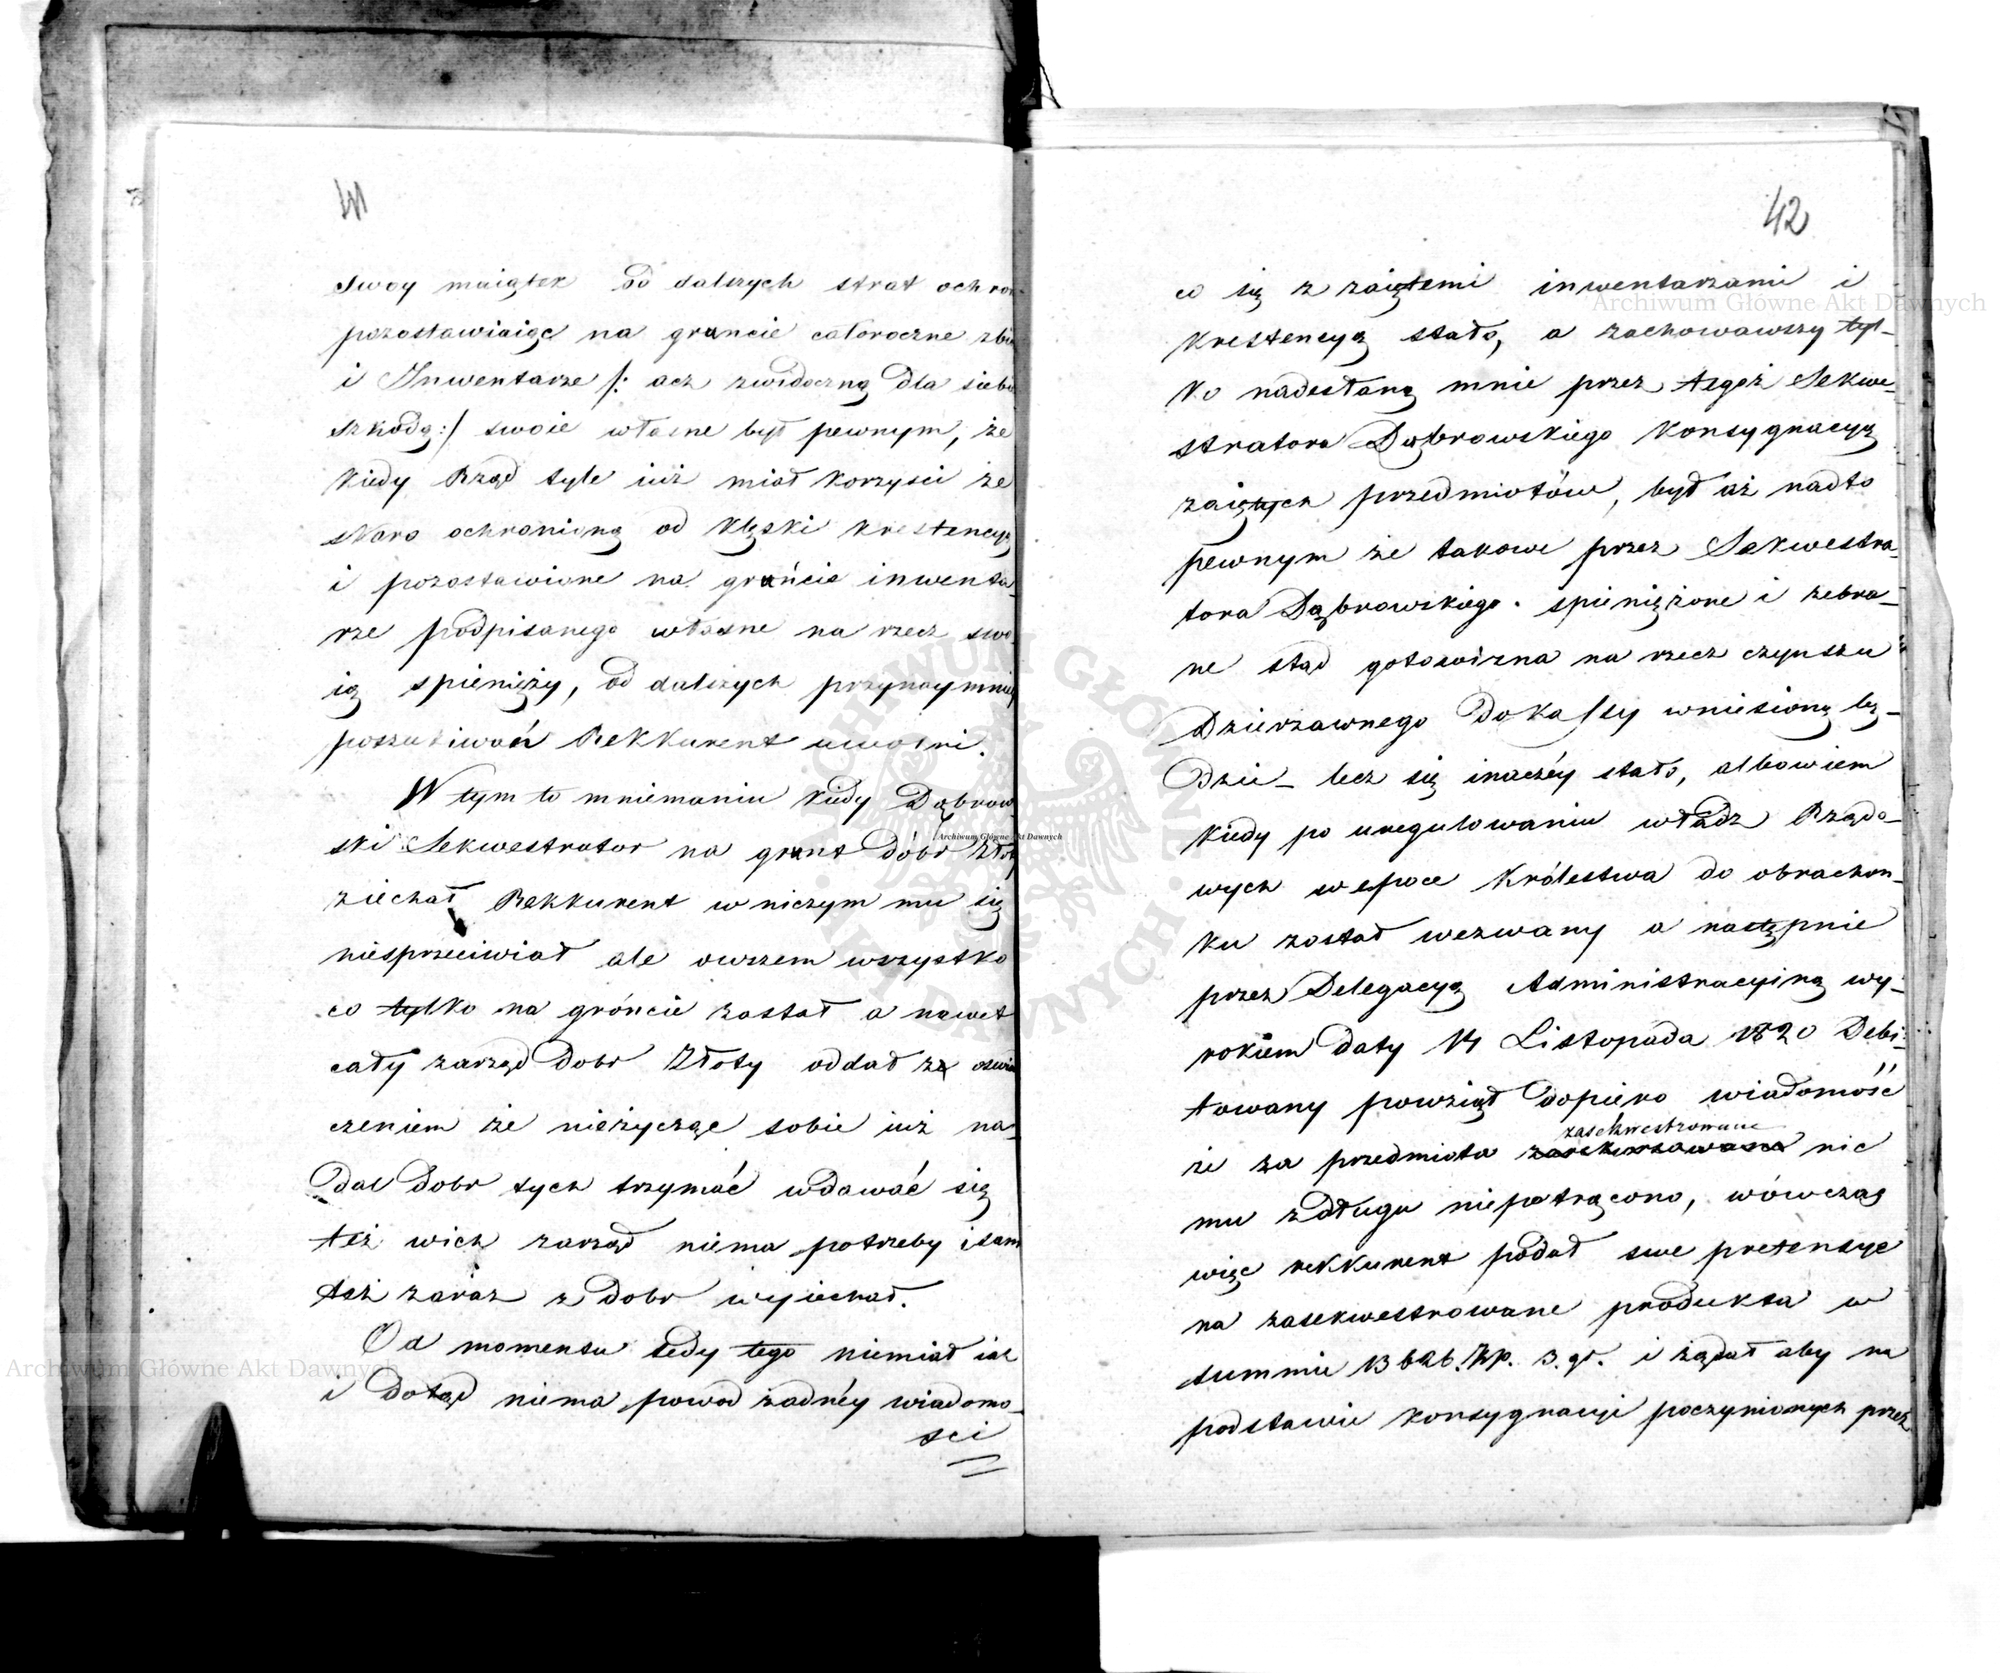 41
swoy maiątek od dalszych strat ochron
pozostawiaiąc na gruncie całoroczne zbio
i Inwentarze /: acz zwidoczną dla siebie
szkodą :/ swoie własne był pewnym, że
kiedy Rząd tyle iuż miał korzysci że
skoro ochronioną od klęski krestencyą
i pozostawione na gruńcie inwenta-
rze podpisanego własne na rzecz swo
ią spienięży, od dalszych przynaymniey
poszukiwań Rekkurent uwolni.
W tym to mniemaniu kiedy Dąbrow
ski Sekwestrator na grunt dóbr Złoty
ziechał Rekkurent wniczym mu się
niesprzeciwiał ale owszem wszystko
co tylko na gróncie zastał a nawet
cały zarząd dobr Złoty oddał z oswia
czeniem że nieżycząc sobie iuż na-
dal dobr tych trzymać wdawać się
też wich zarząd niema potrzeby i sam
też zaraz z dobr wyiechał.
Od momentu tedy tego niemiał iak
i dotąd niema powod żadnéy wiadomo-
sci
42
co się z zaiętemi inwentarzami i
krestencyą stało, a zachowawszy tyl-
ko nadesłaną mnie przez tegoż Sekwe-
stratora Dąbrowskiego konsygnacyą
zaiętych przedmiotów, był aż nadto
pewnym że takowe przez Sekwestra-
tora Dąbrowskiego spieniężone i zebra-
ne stąd gotowizna na rzecz czynszu
Dzierzawnego do kassy wniesioną bę-
dzie – lecz się inaczéy stało, albowiem
kiedy po uregulowaniu władz Rządo-
wych wepoce Królestwa do obrachon-
ku został wezwany a następnie
przez Delegacyą Administracyiną wy-
rokiem daty 14 Listopada 1820 Debi-
towany powziął dopiero wiadomość
zasekwestrowane
że za przedmiota nic
mu zdługu niepotrącono, wówczas
więc rekkurent podał swe pretensye
na zasekwestrowane produkta w
summie 13626. Zp. 3. gr. i żądał aby na
podstawie konsygnacyi poczynionych przez
Archiwum Główne Akt Dawnych
Archiwum Główne Akt Dawnych
Archiwum Główne Akt Dawnych
ARCHIWUM GŁÓWNE AKT DAWNYCH